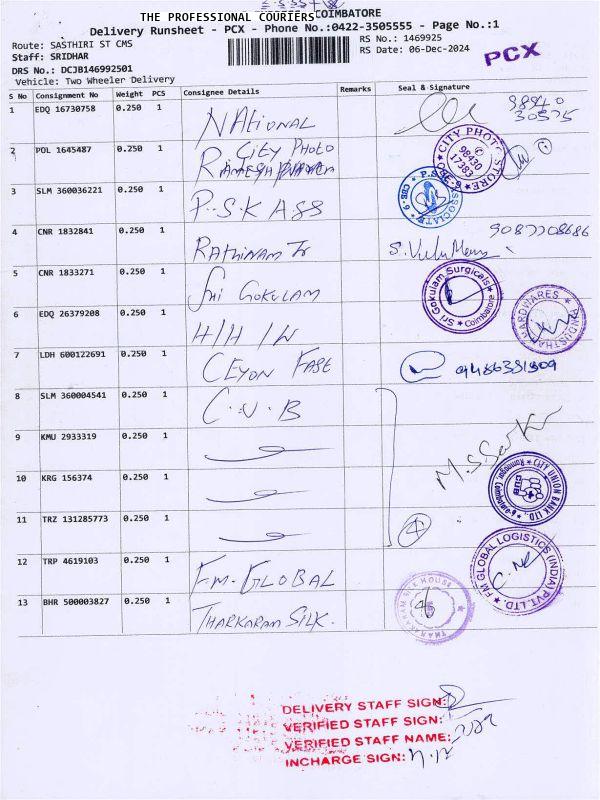 THE PROFESSIONAL COURIERS COIMBATORE
Delivery Runsheet - PCX - Phone No.:0422-3505555 - Page No.:1
Route: SASTHIRI ST CMS
RS No.: 1469925
Staff: SRIDHAR
RS Date: 06-Dec-2024
PCX
DRS No.: DCJB146992501
Vehicle: Two Wheeler Delivery
S No Consignment No Weight PCS Consignee Details Remarks Seal & Signature
1 EDQ 16730758 0.250 1 NATIONAL
2 POL 1645487 0.250 1 CITY PHOTO
CITY PHOTO STORE 98430 17383
3 SLM 360036221 0.250 1 P.S.K ASS
4 CNR 1832841 0.250 1 RATHINAM Tr
5 CNR 1833271 0.250 1 Sri GOKULAM
Sri Gokulam Surgicals Coimbatore
6 EDQ 26379208 0.250 1 H/H /W
HARDWARES
7 LDH 600122691 0.250 1 CEYON FASE
8 SLM 360004541 0.250 1 C.U.B
9 KMU 2933319 0.250 1
10 KRG 156374 0.250 1
CITY UNION BANK LTD
CUB
11 TRZ 131285773 0.250 1
4
12 TRP 4619103 0.250 1 FM-GLOBAL
FM GLOBAL LOGISTICS (INDIA) PVT. LTD.
13 BHR 500003827 0.250 1 THARKARAM SILK.
THARAKARAM SILK HOUSE
DELIVERY STAFF SIGN:
VERIFIED STAFF SIGN:
VERIFIED STAFF NAME:
INCHARGE SIGN: